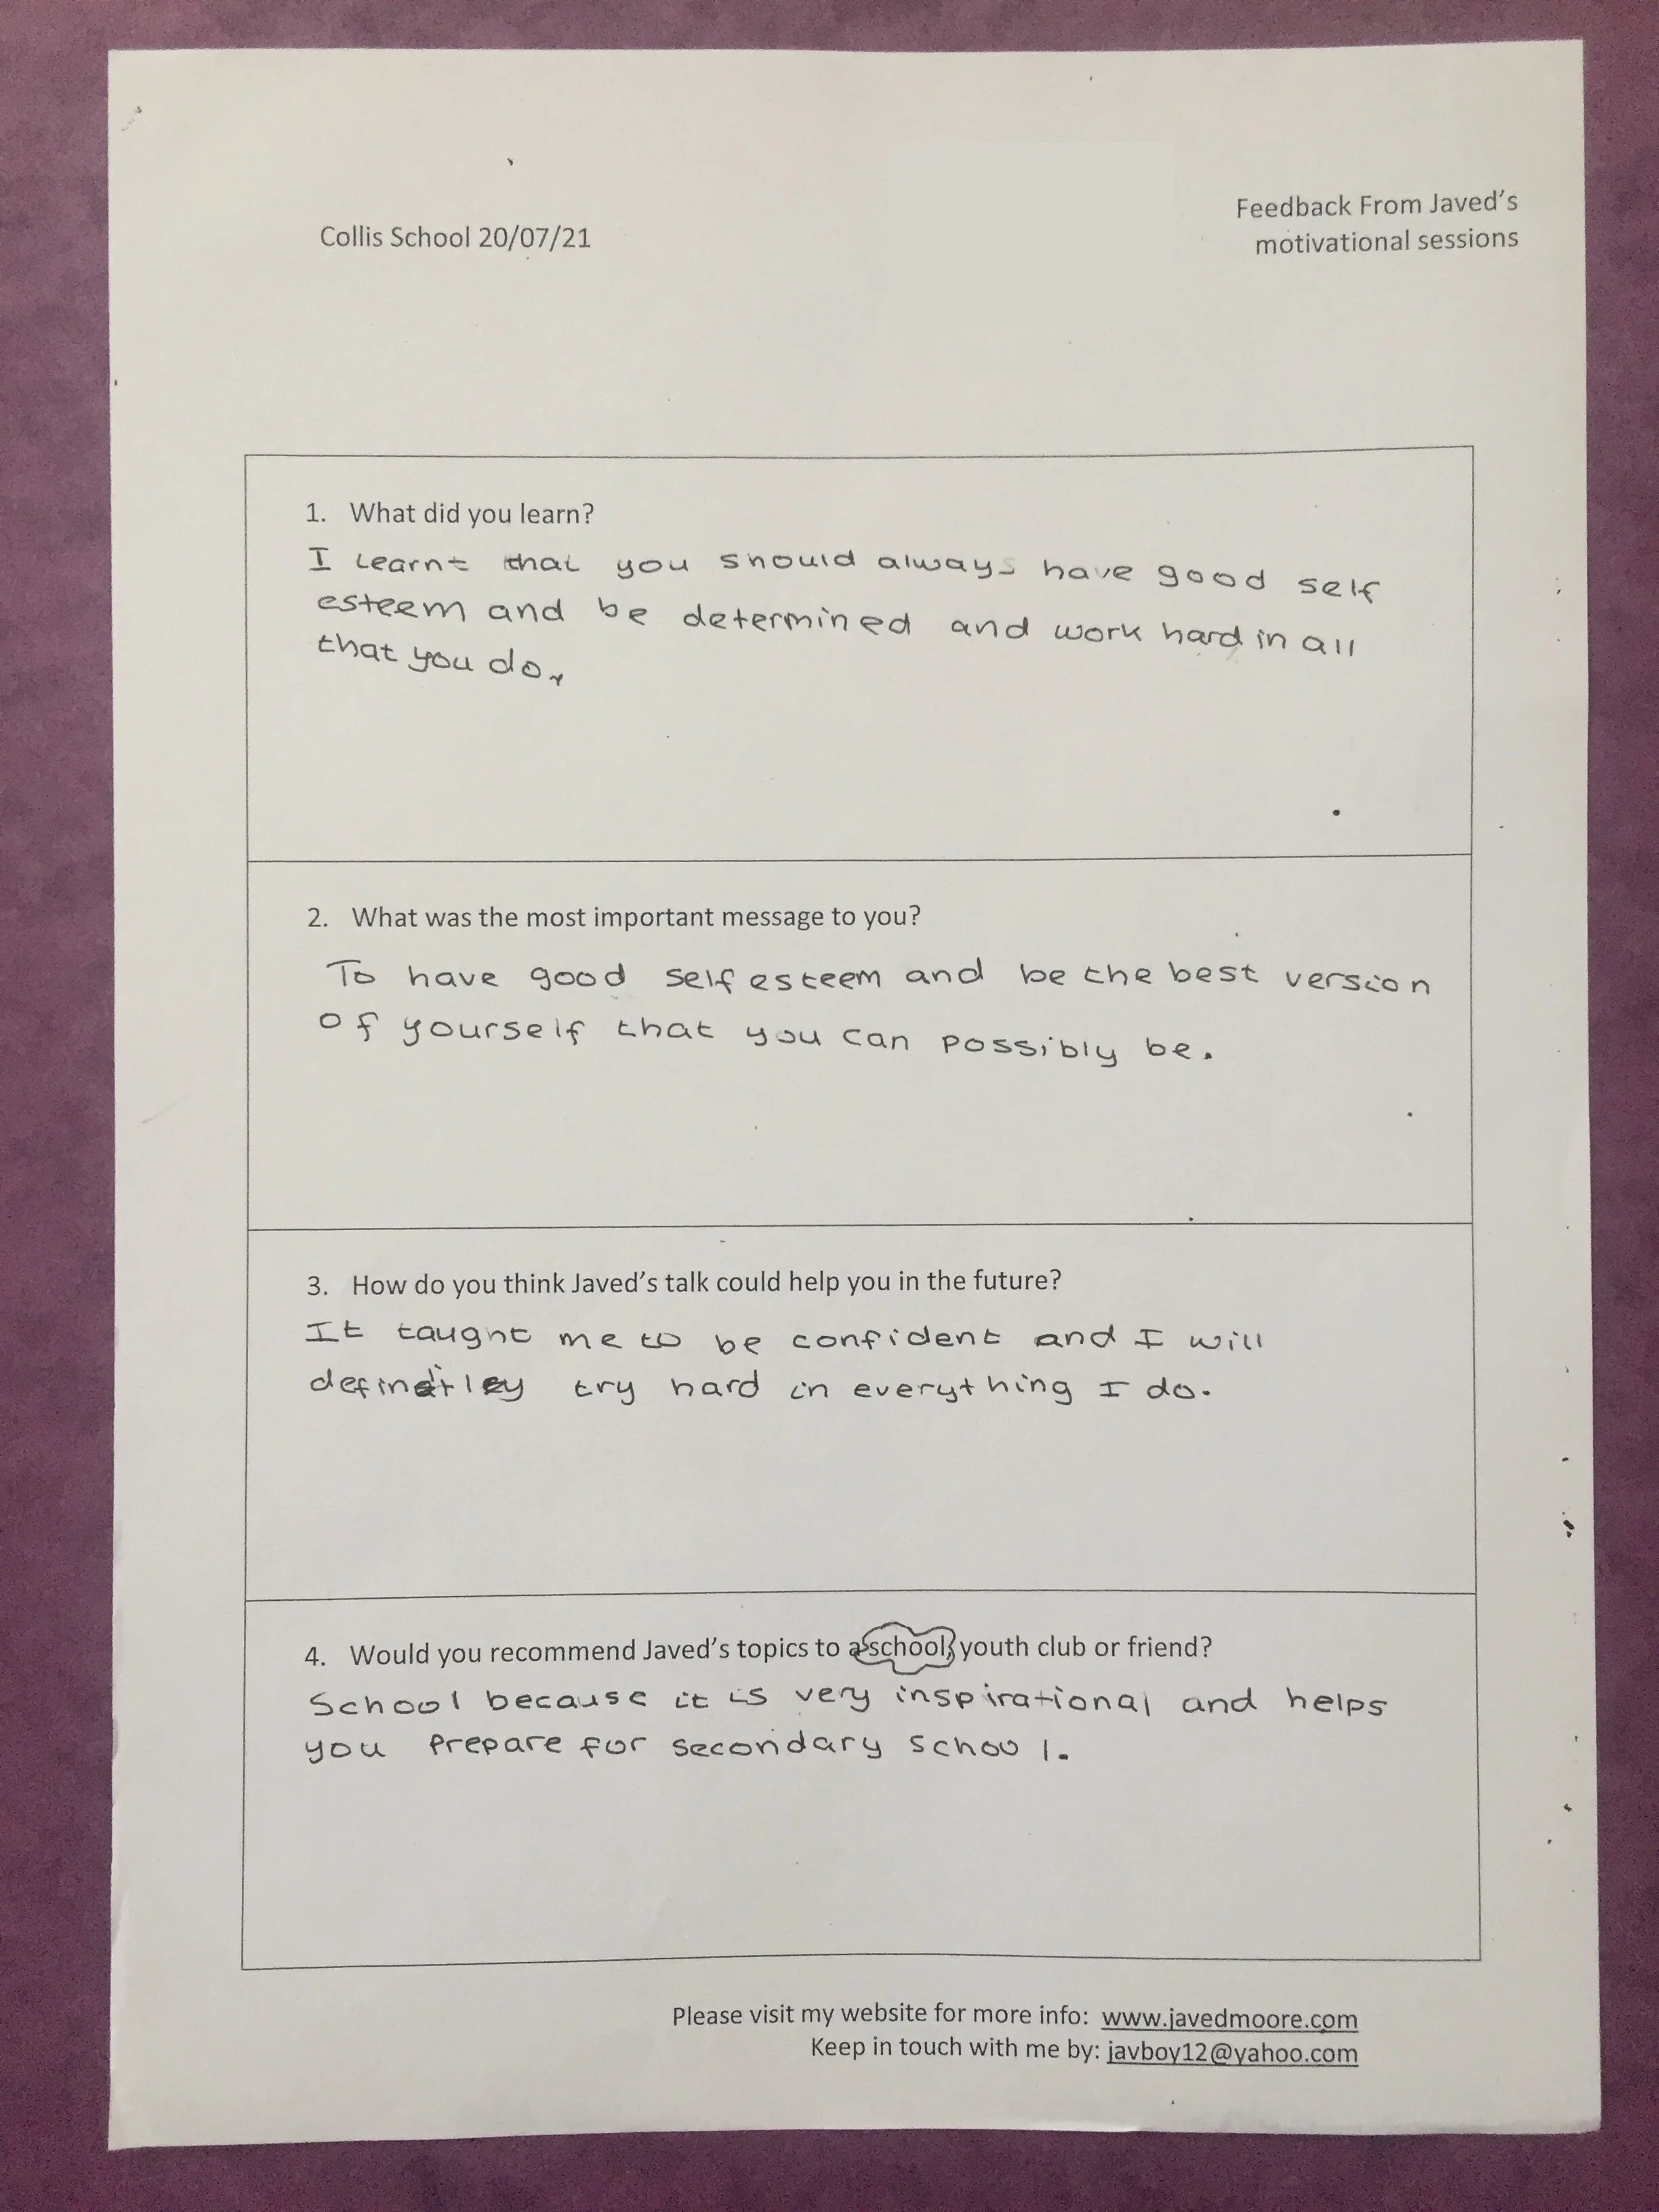 Collis School 20/07/21
Feedback From Javed's
motivational sessions
1. What did you learn?
I learnt that you should always have good self
esteem and be determined and work hard in all
that you do.
2. What was the most important message to you?
To have good self esteem and be the best version
of yourself that you can possibly be.
3. How do you think Javed's talk could help you in the future?
It taught me to be confident and I will
definitley try hard in everything I do.
4. Would you recommend Javed's topics to a school, youth club or friend?
School because it is very inspirational and helps
you prepare for secondary school.
Please visit my website for more info: www.javedmoore.com
Keep in touch with me by: javboy12@yahoo.com